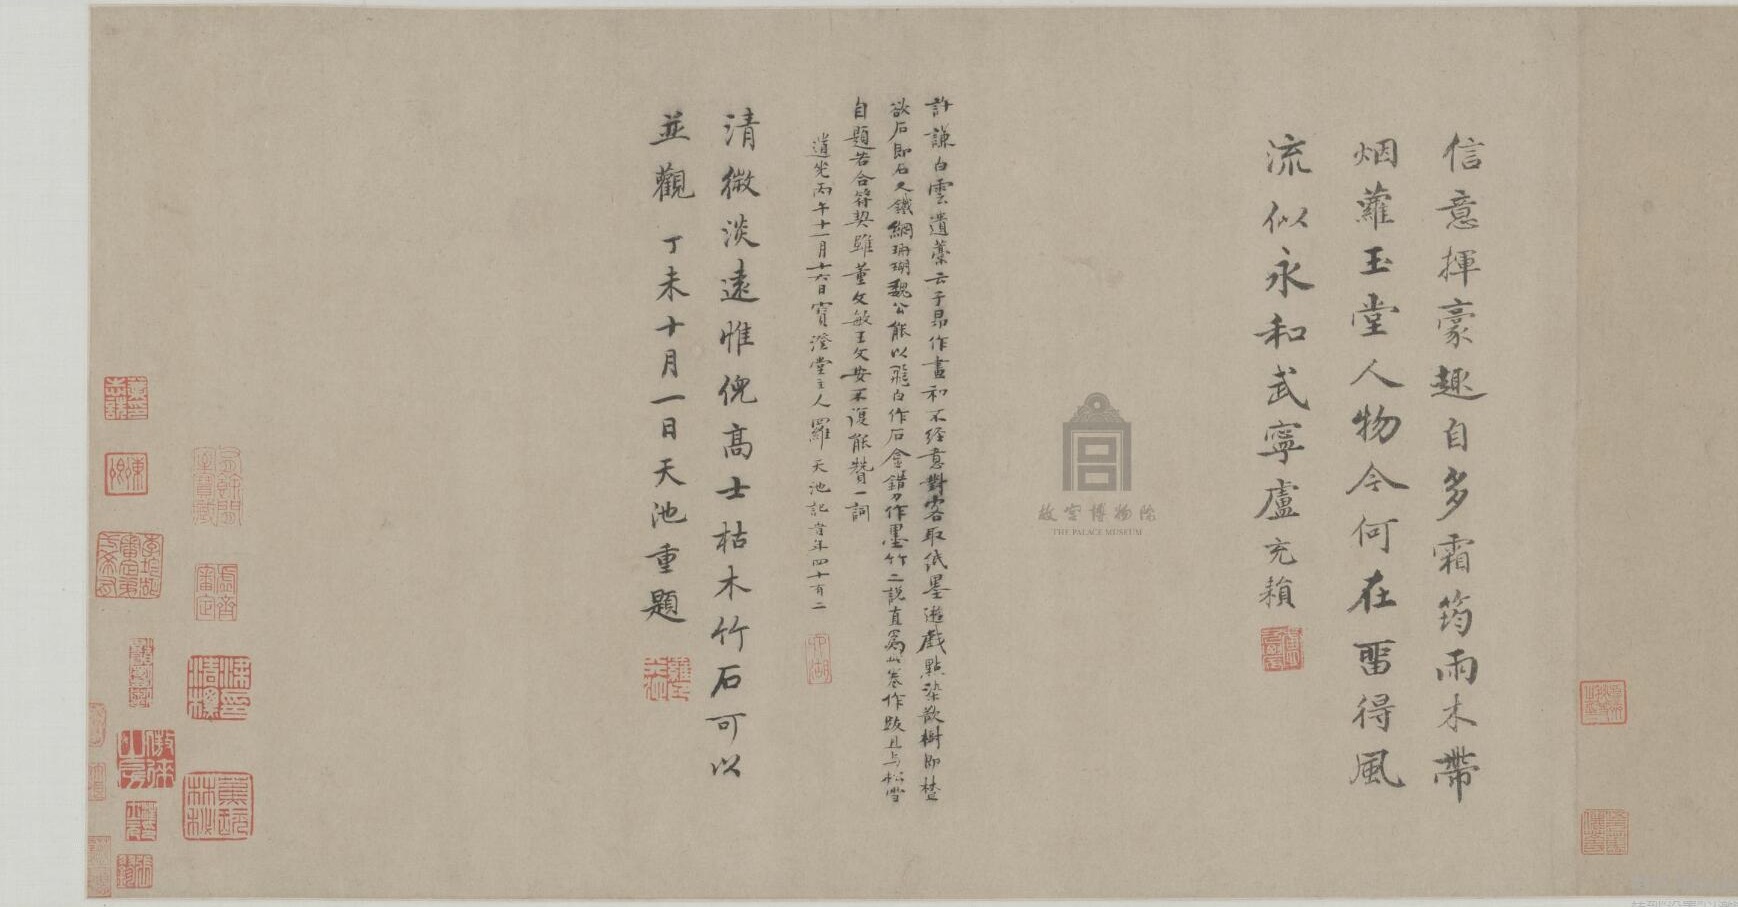 信意揮豪趣自多霜筠雨木帶
烟蘿玉堂人物今何在留得風
流似永和武寧盧充頖
故宮博物院
THE PALACE MUSEUM
許謙白雲遺藁云子昂作畫初不經意對客取紙墨遊戲點染欲樹即樹
欲石即石又鐵網珊瑚魏公能以飛白作石金錯刀作墨竹二說直爲此卷作跋且与松雪
自題若合符契雖董文敏王文安不復能贊一詞
道光丙午十一月十六日寶澄堂主人羅天池記時年四十有二
清微淡遠惟倪高士枯木竹石可以
並觀丁未十月一日天池重題